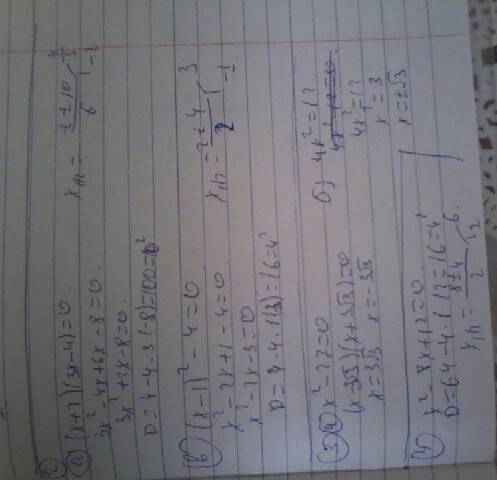 2
а) (x+2)(3x-4)=0.
3x²-4x+6x-8=0.
3x²+2x-8=0.
D=4-4·3·(-8)=100=10²
x₁/₂ = (-2±10)/6 4/3 -2
б) (x-1)²-4=0
x²-2x+1-4=0.
x²-2x-3=0
D=4-4·1(3)=16=4²
x₁/₂ = (2±4)/2 3 -1
3 а) x²-27=0
(x-3√3)(x+3√3)=0
x=3√3 x=-3√3
б) 4x²=12
4x²=12
x²=3
x=±√3
4) x²-8x+12=0.
D=64-4·1·12=16=4²
x₁/₂ = (8±4)/2 6. 2